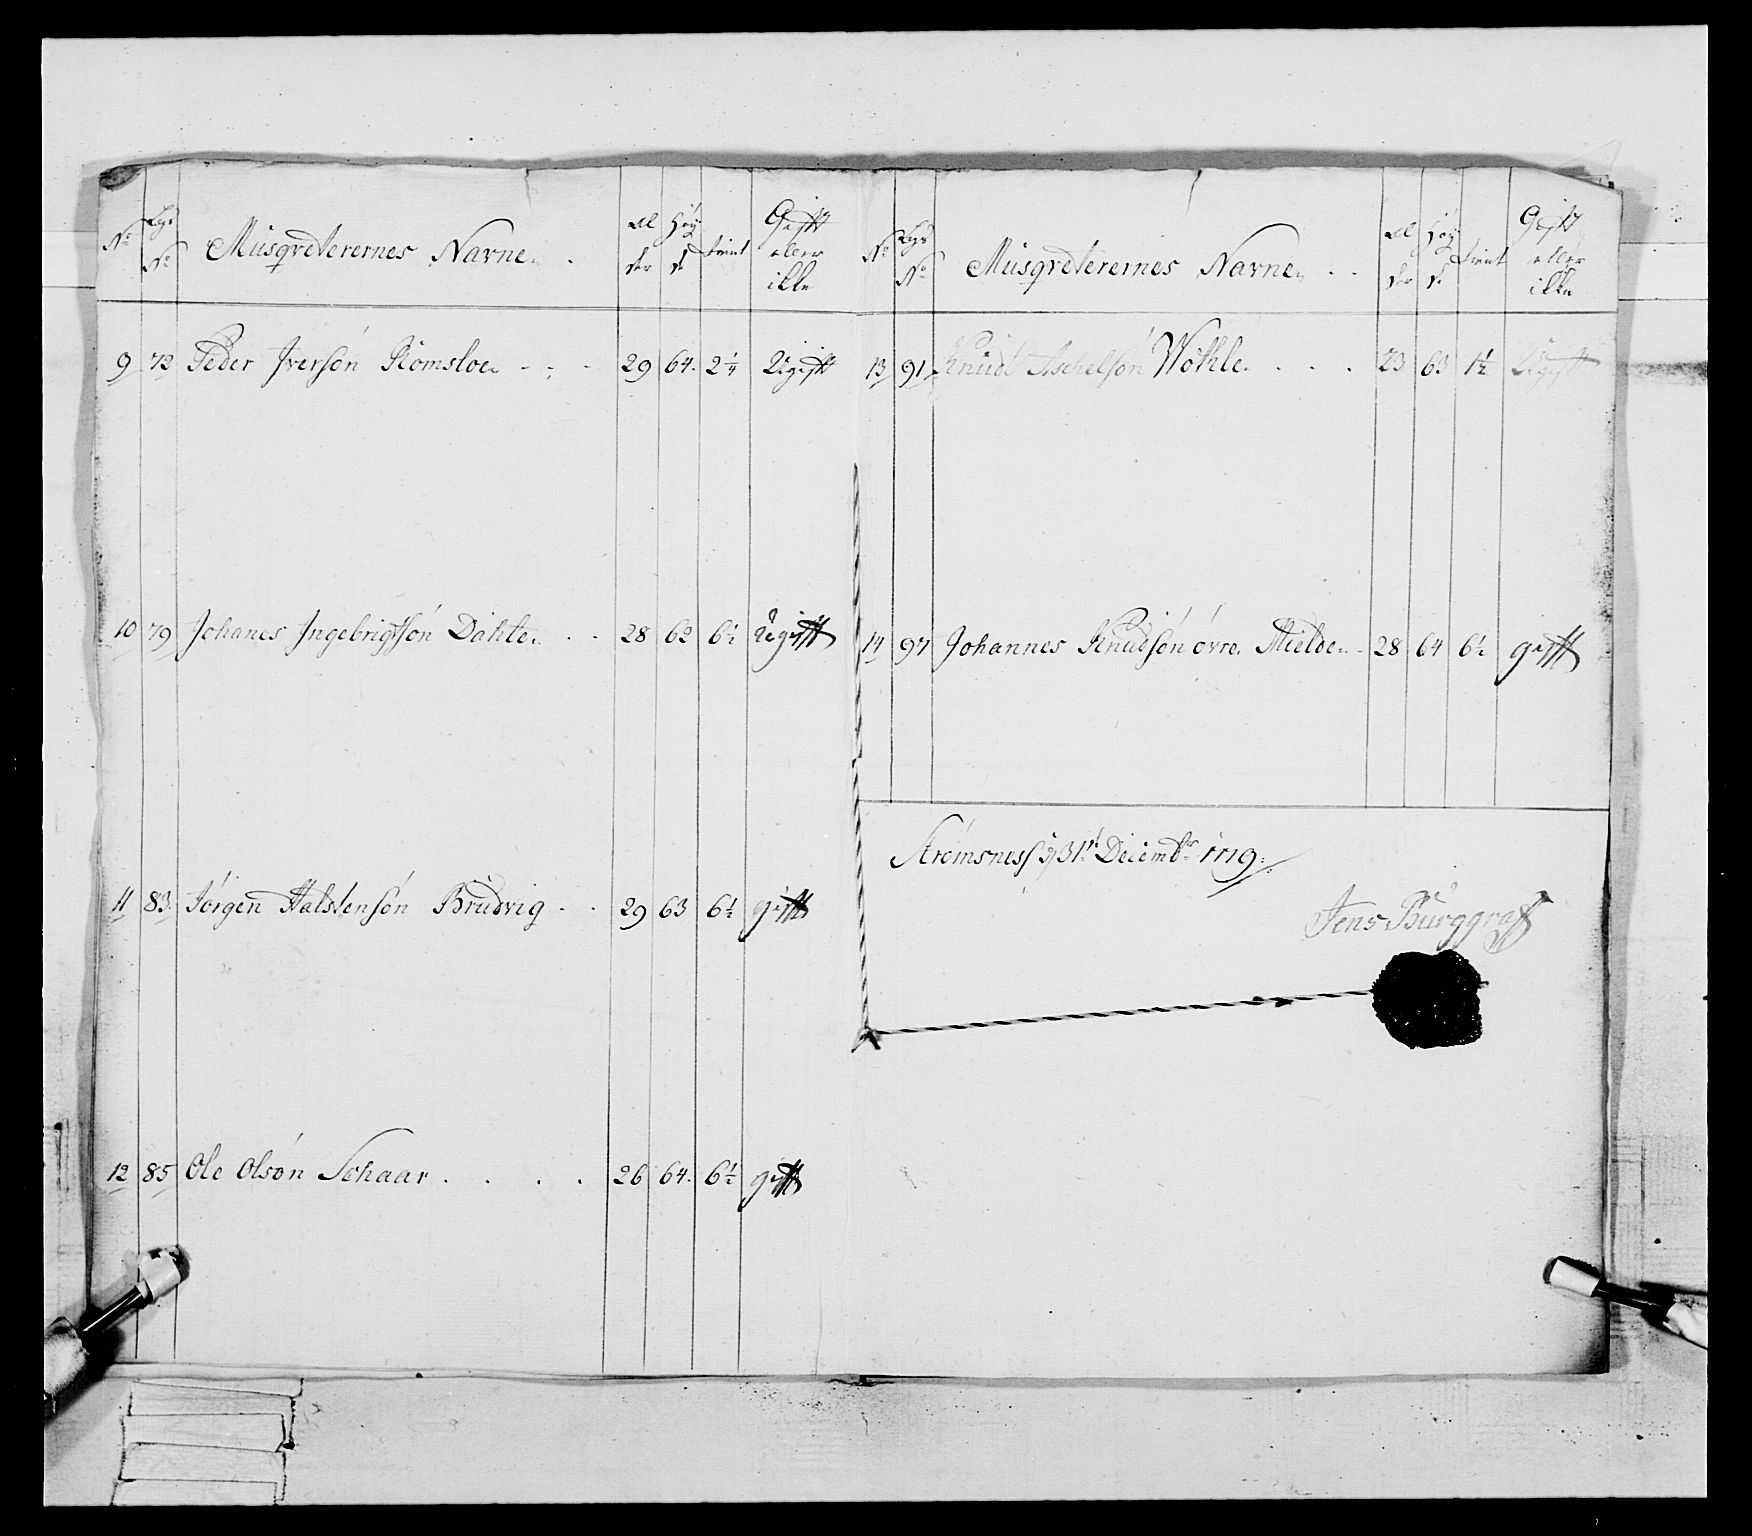 No Lægs No Musqveterernes Navne Alder Høyde tient Gifft eller ikke
9 72 Peder Iversøn Romsloe 29 64 2¼ Ugifft
10 79 Johanes Ingebrigtsøn Dahle 28 62 6½ Ugifft
11 83 Jørgen Halstensøn Brudvig 29 63 6½ gifft
12 85 Ole Olsøn Schaar 26 64 6½ gifft
No Lægs No Musqveterernes Navne Alder Høyde tient Gifft eller ikke
13 91 Knud Aschelsøn Wohle 23 63 1½ Ugifft
14 97 Johannes Knudsøn øvre Mielde 28 64 6½ gifft
Strømsness d 31te Decembr 1779
Jens Burggraff